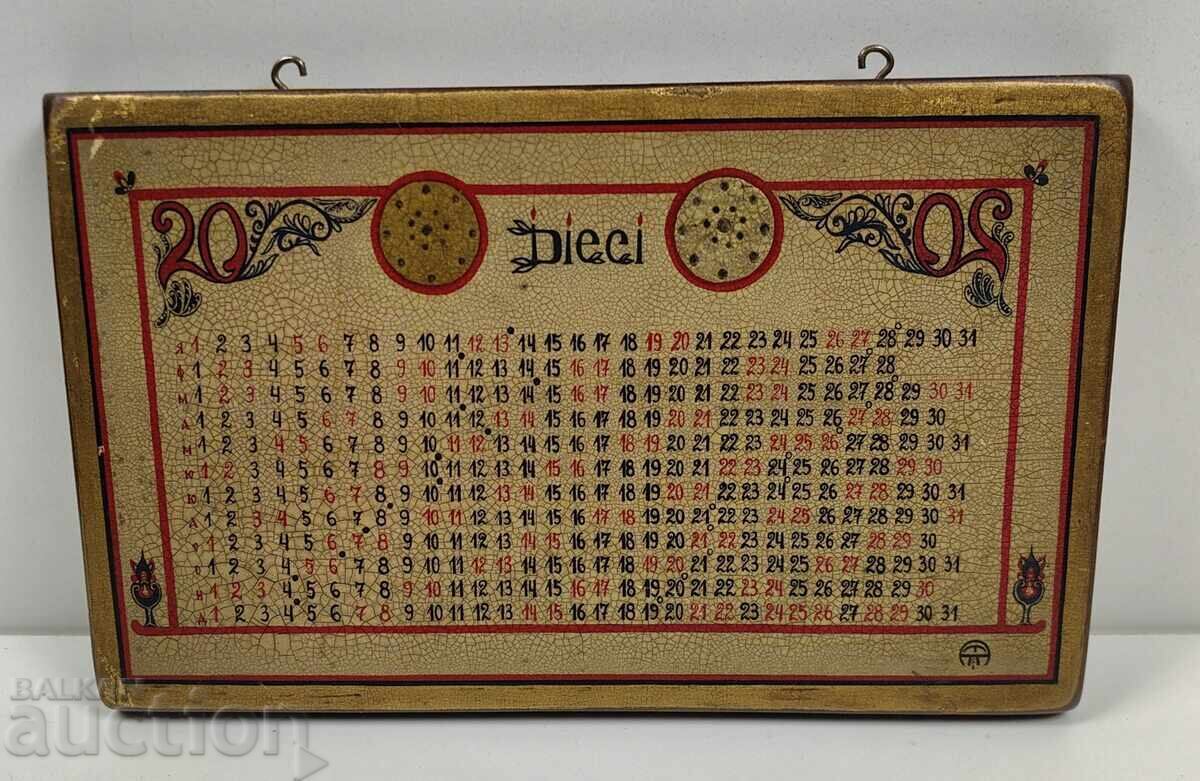 20 Dieci 02
я 1 2 3 4 5 6 7 8 9 10 11 12 13 14 15 16 17 18 19 20 21 22 23 24 25 26 27 28 29 30 31
ф 1 2 3 4 5 6 7 8 9 10 11 12 13 14 15 16 17 18 19 20 21 22 23 24 25 26 27 28
м 1 2 3 4 5 6 7 8 9 10 11 12 13 14 15 16 17 18 19 20 21 22 23 24 25 26 27 28 29 30 31
а 1 2 3 4 5 6 7 8 9 10 11 12 13 14 15 16 17 18 19 20 21 22 23 24 25 26 27 28 29 30
м 1 2 3 4 5 6 7 8 9 10 11 12 13 14 15 16 17 18 19 20 21 22 23 24 25 26 27 28 29 30 31
ю 1 2 3 4 5 6 7 8 9 10 11 12 13 14 15 16 17 18 19 20 21 22 23 24 25 26 27 28 29 30
ю 1 2 3 4 5 6 7 8 9 10 11 12 13 14 15 16 17 18 19 20 21 22 23 24 25 26 27 28 29 30 31
а 1 2 3 4 5 6 7 8 9 10 11 12 13 14 15 16 17 18 19 20 21 22 23 24 25 26 27 28 29 30 31
1 2 3 4 5 6 7 8 9 10 11 12 13 14 15 16 17 18 19 20 21 22 23 24 25 26 27 28 29 30
о 1 2 3 4 5 6 7 8 9 10 11 12 13 14 15 16 17 18 19 20 21 22 23 24 25 26 27 28 29 30 31
н 1 2 3 4 5 6 7 8 9 10 11 12 13 14 15 16 17 18 19 20 21 22 23 24 25 26 27 28 29 30
д 1 2 3 4 5 6 7 8 9 10 11 12 13 14 15 16 17 18 19 20 21 22 23 24 25 26 27 28 29 30 31
BALKAN
auction